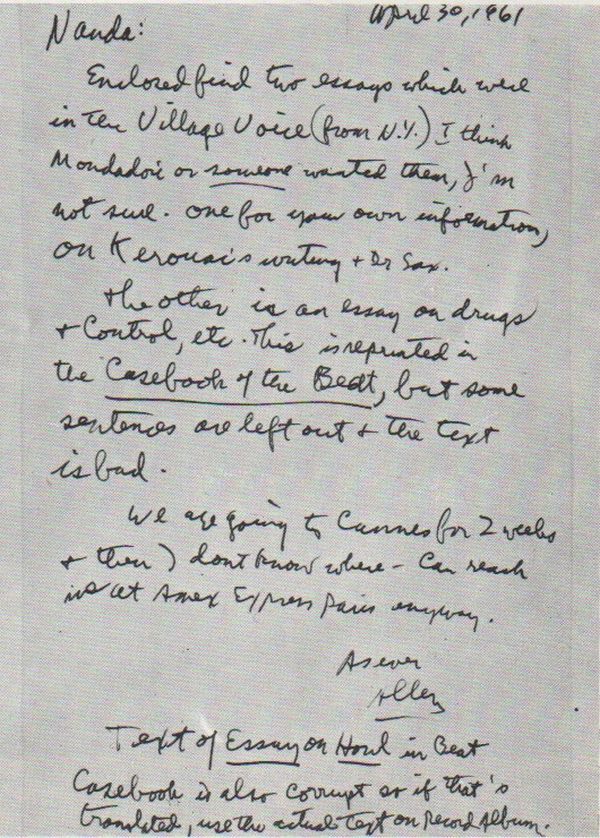 April 30, 1961
Nanda:
Enclosed find two essays which were
in the Village Voice (from N.Y.) I think
Mondadori or someone wanted them, I'm
not sure. one for your own information,
on Kerouac's writing + Dr Sax.
the other is an essay on drugs
+ Control, etc. This is reprinted in
the Casebook of the Beat, but some
sentences are left out + the text
is bad.
We are going to Cannes for 2 weeks
+ then I dont know where - Can reach
us at Amex Express Paris anyway.
As ever
Allen
Text of Essay on Howl in Beat
Casebook is also corrupt so if that's
translated, use the actual text on Record Album.